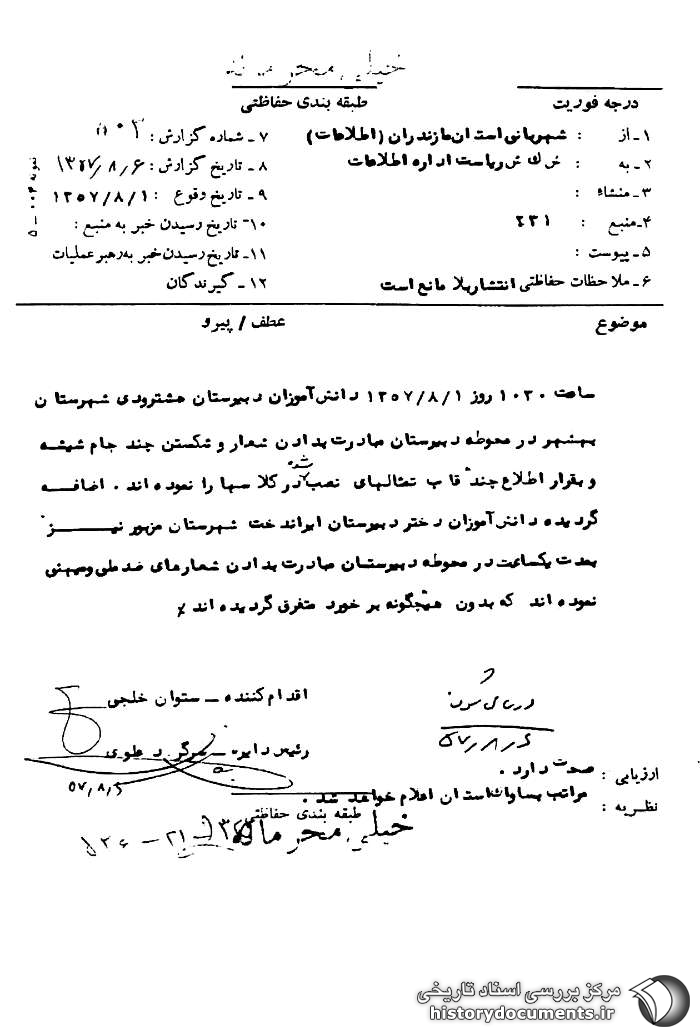 خیلی محرمانه
درجه فوریت طبقه بندی حفاظتی
۱ـ از : شهربانی استان مازندران (اطلاعات) ۷ ـ شماره گزارش :
۲ـ به : ش ك ش ریاست اداره اطلاعات ۸ ـ تاریخ گزارش : ۱۳۵۷/۸/۶
۳ـ منشاء : ۹ ـ تاریخ وقوع : ۱۳۵۷/۸/۱
۴ـ منبع : ۲۳۱ ۱۰ـ تاریخ رسیدن خبر به منبع :
۵ـ پیوست : ۱۱ـ تاریخ رسیدن خبر به رهبر عملیات
۶ ـ ملاحظات حفاظتی انتشار بلا مانع است ۱۲ ـ گیرندگان
موضوع عطف / پیرو
ساعت ۱۰۳۰ روز ۱۳۵۷/۸/۱ دانش‌آموزان دبیرستان هشترودی شهرستان
بهشهر در محوطه دبیرستان مبادرت بدادن شعار و شکستن چند جام شیشه
و بقرار اطلاع چند قاب تمثالهای نصب شده در کلاسها را نموده اند . اضافه
گردیده دانش‌آموزان دختر دبیرستان ایراندخت شهرستان مزبور نیز
بمدت یکساعت در محوطه دبیرستان مبادرت بدادن شعارهای ضد ملی و میهنی
نموده اند که بدون هیچگونه برخورد متفرق گردیده اند
اقدام کننده ـ ستوان خلجی
۵۷/۸/۶
رئیس دایره ـ سرگرد علوی
۵۷/۸/۶
ارزیابی : صحت دارد .
نظریه : مراتب بساواك استان اعلام خواهد شد .
طبقه بندی حفاظتی
خیلی محرمانه
مرکز بررسی اسناد تاریخی
historydocuments.ir